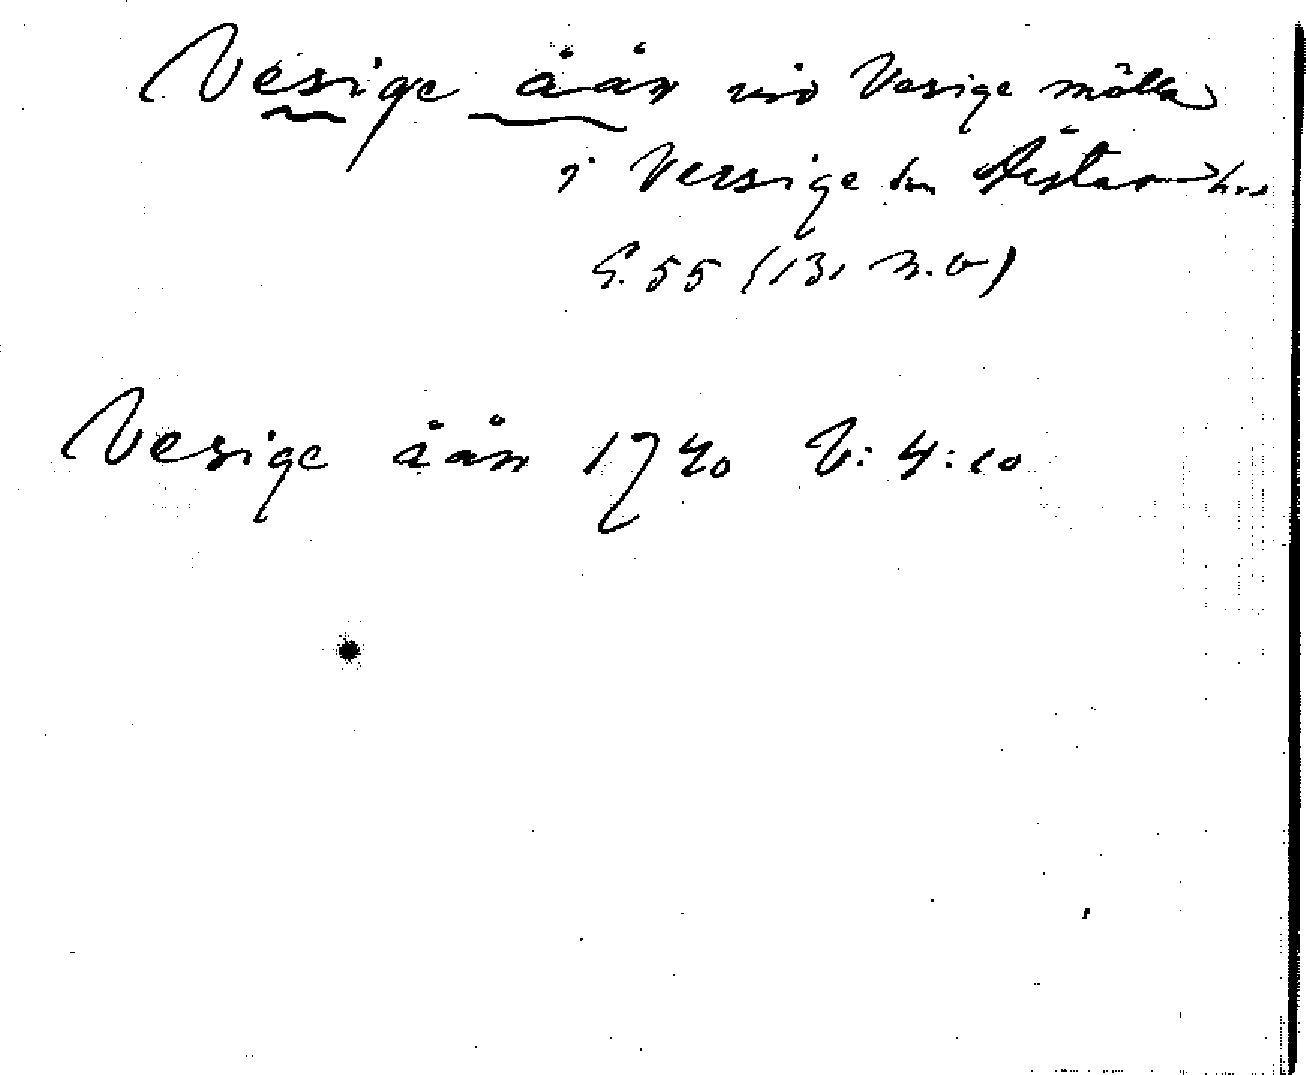 Vesige åån vid Vesige mölla
i Versige sn Årstads hd
S. 55 (13,
Vesige åån 1740 V: 4:10